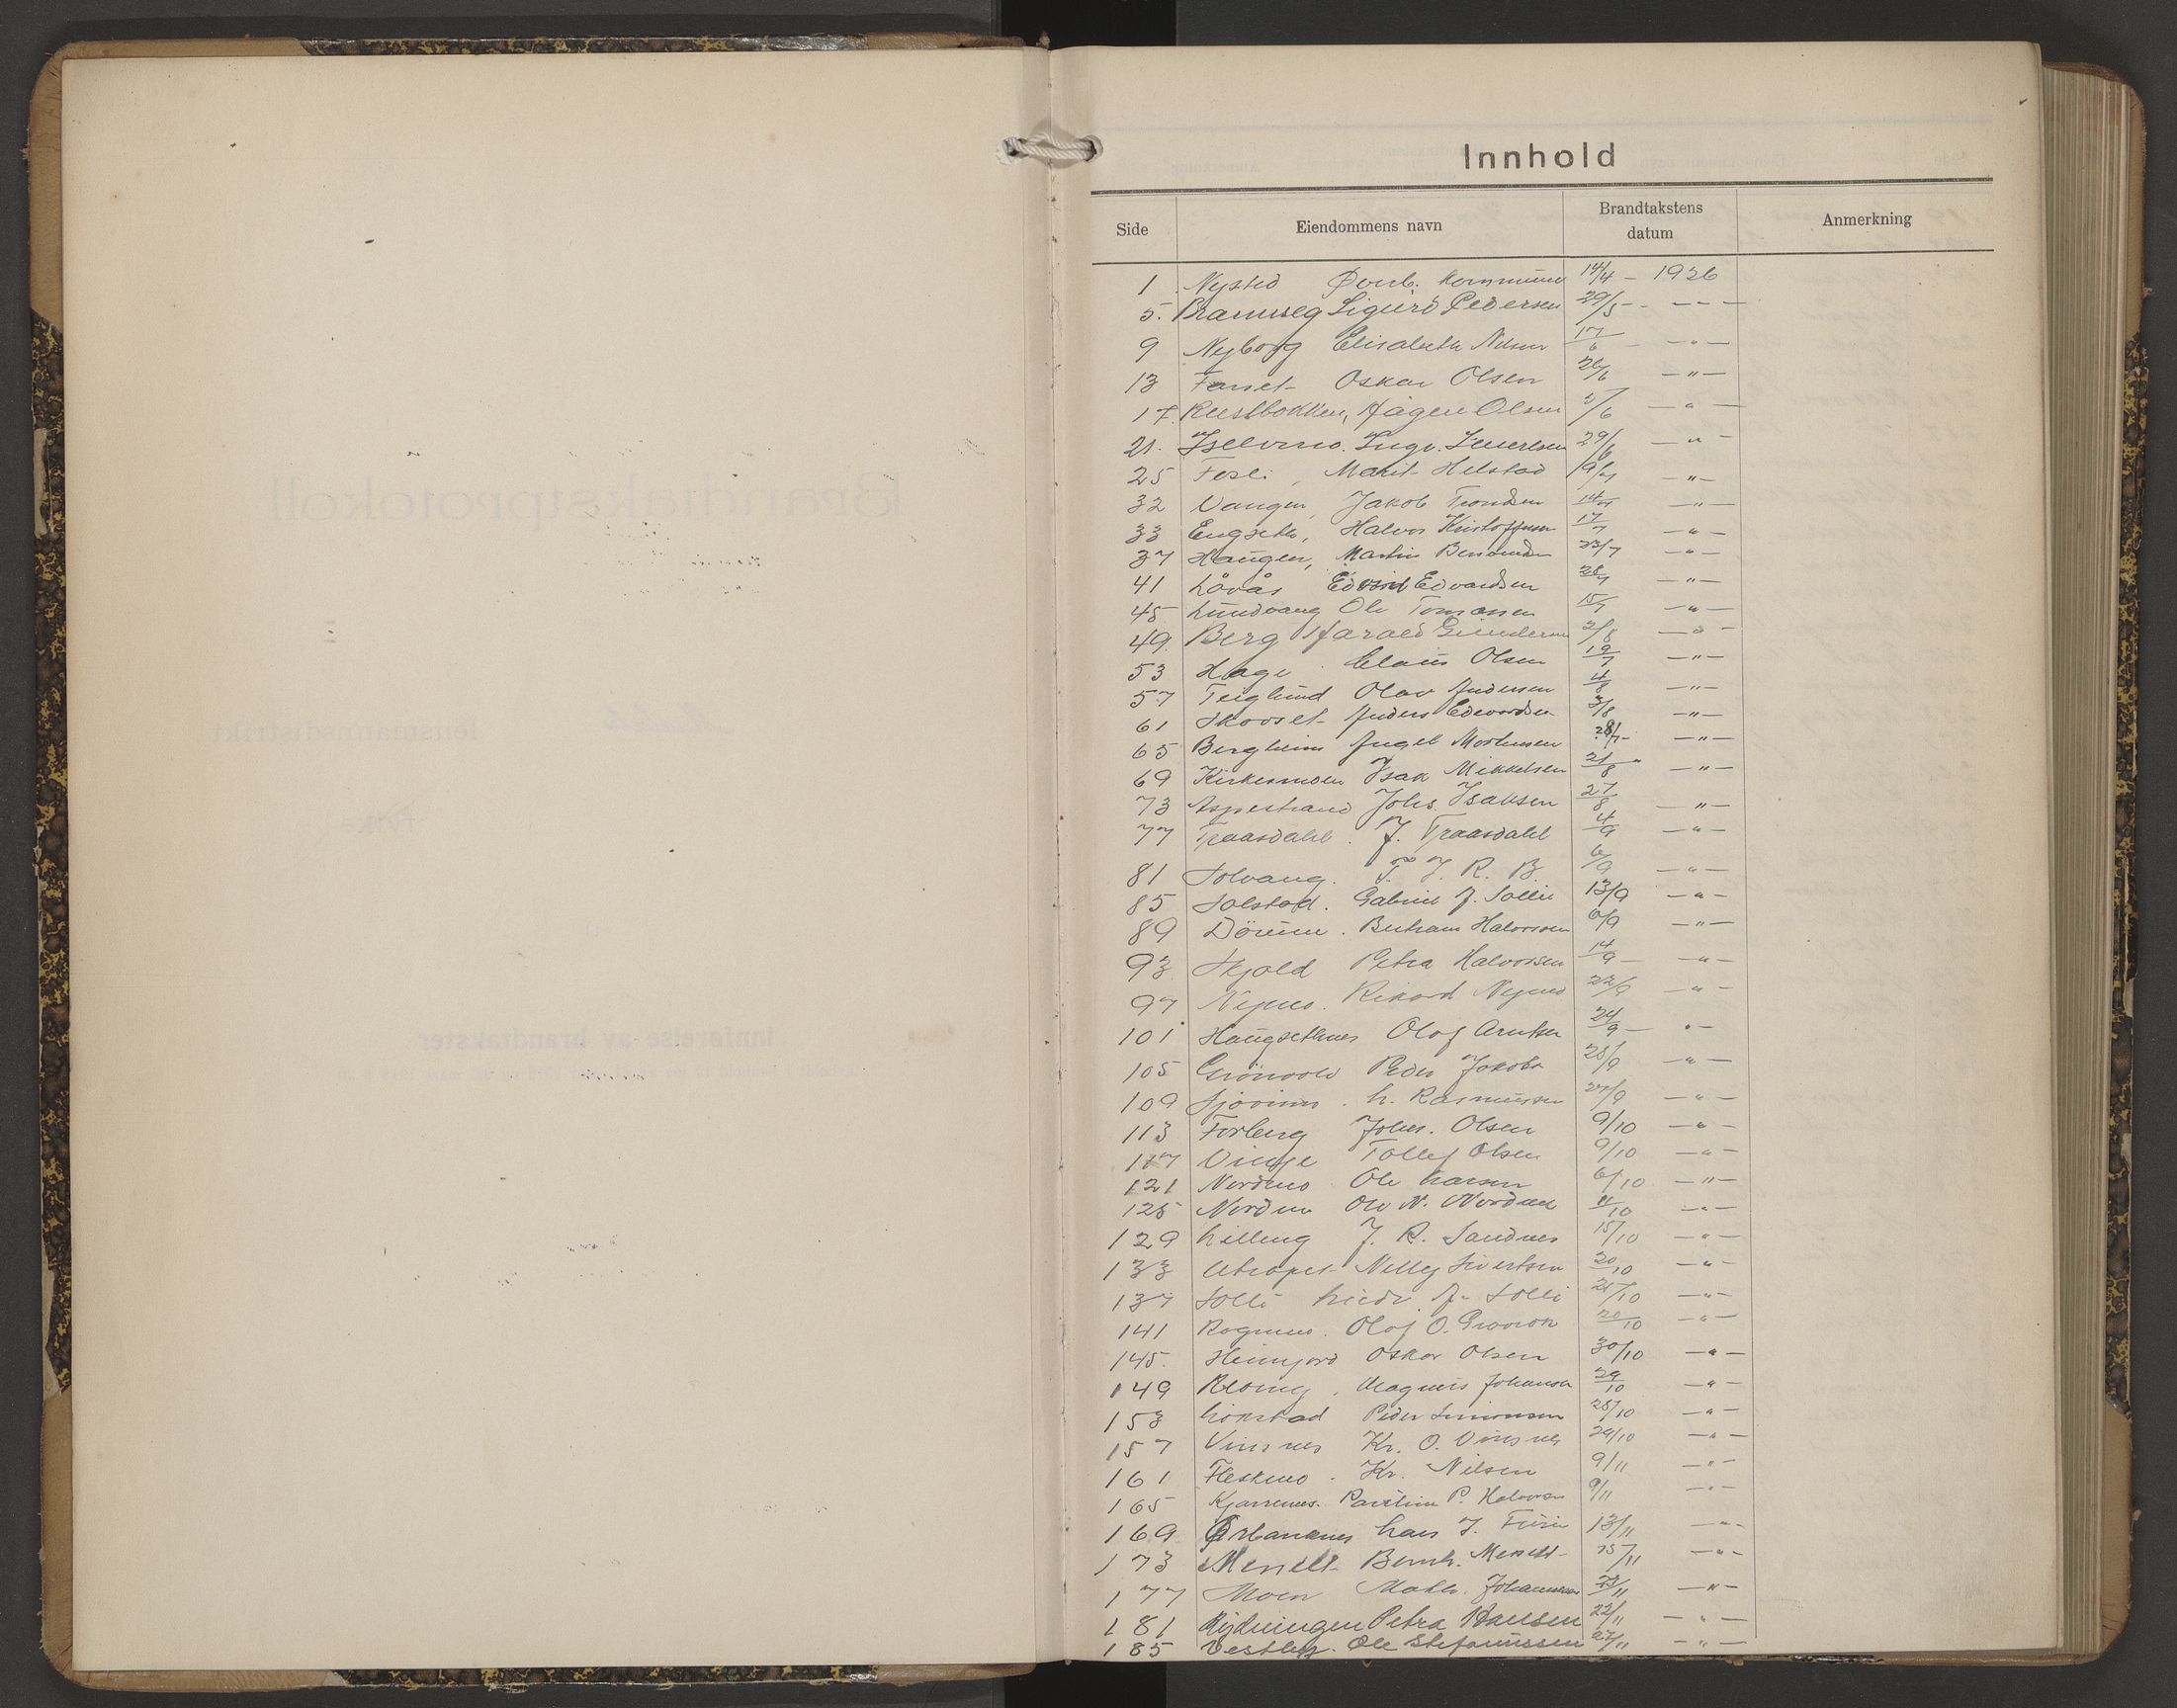 Innhold
Side Eiendommens navn Brandtakstens datum Anmerkning
1 Nysted Øverb. kommune 14/4 - 1926
5. Sigurd Pedersen 29/5 - - -
9 Nyborg Elisabeth Nilsen 17/6 - " -
13 Oskar Olsen 26/6 - " -
17. Rustbakken, Hågen Olsen /6 - " -
21. Iselvmo. Ingv. 29/6 - " -
25 Fosli, Marit Helstad 19/7 - " -
32 Vangen, Jakob Trondsen 14/7 - " -
33 Engseth, Halvor Kristoffersen 17/7 - " -
37 Haugen, Martin 23/7 - " -
41 Løvås Edvard Edvardsen 28/7 - " -
45 Lundvang Ole Tomassen 15/7 - " -
49. Berg Harald Gundersen 2/8 - " -
53 Hage Claus Olsen 19/7 - " -
57 Teiglund Olav Andersen 4/8 - " -
61 Skovset Anders Edvardsen 3/8 - " -
65 Bergheim Angel Mortensen 28/7 - " -
69 Kirkesmoen Isak Mikkelsen 21/8 - " -
73 Aspestrand Johs. Isaksen 27/8 - " -
77 Traasdahl. J. Traasdahl 4/9 - " -
81 Solvang. T. J. R. B. 6/9 - " -
85 Solstad. Gabriel J. Sollie 13/9 - " -
89 Bertram Halvorsen 6/9 - " -
93 Skjold Petra Halvorsen 14/9 - " -
97 Nymo. Rikard Nymo 22/9 - " -
101 Haugsethnes Olaf Arntsen 24/9 - " -
105 Grönvold Peder Jakobs 28/9 - " -
109 L. Rasmussen 27/9 - " -
113 Forberg Johs. Olsen 9/10 - " -
117 Vinje Tollef Olsen 9/10 - " -
121 Nordmo Ole Larsen 6/10 - " -
125 Nordmo Ole N. Nordmo 11/10 - " -
129 J. R. Sandnes 15/10 - " -
133 Nelly Sivertsen 20/10 - " -
137 Solli J. Solli 21/10 - " -
141 Rognmo. Olaf O. 20/10 - " -
145. Heimjord Oskar Olsen 30/10 - " -
149 Magnus Johansen 29/10 - " -
153 Peder Simonsen 28/10 - " -
157 Vinsnes Kr. O. Vinsnes 29/10 - " -
161 Fleskmo. Kr. Nilsen 9/11 - " -
165 Kjærrenes. P. Halvorsen 9/11 - " -
169 Lars J. 13/11 - " -
173 Bernh. 15/11 - " -
177 Moen Math. Johannesen 23/11 - " -
181 Rydningen Petra Hansen 22/11 - " -
185 Vestby. Ole Stefanussen 27/11 - " -